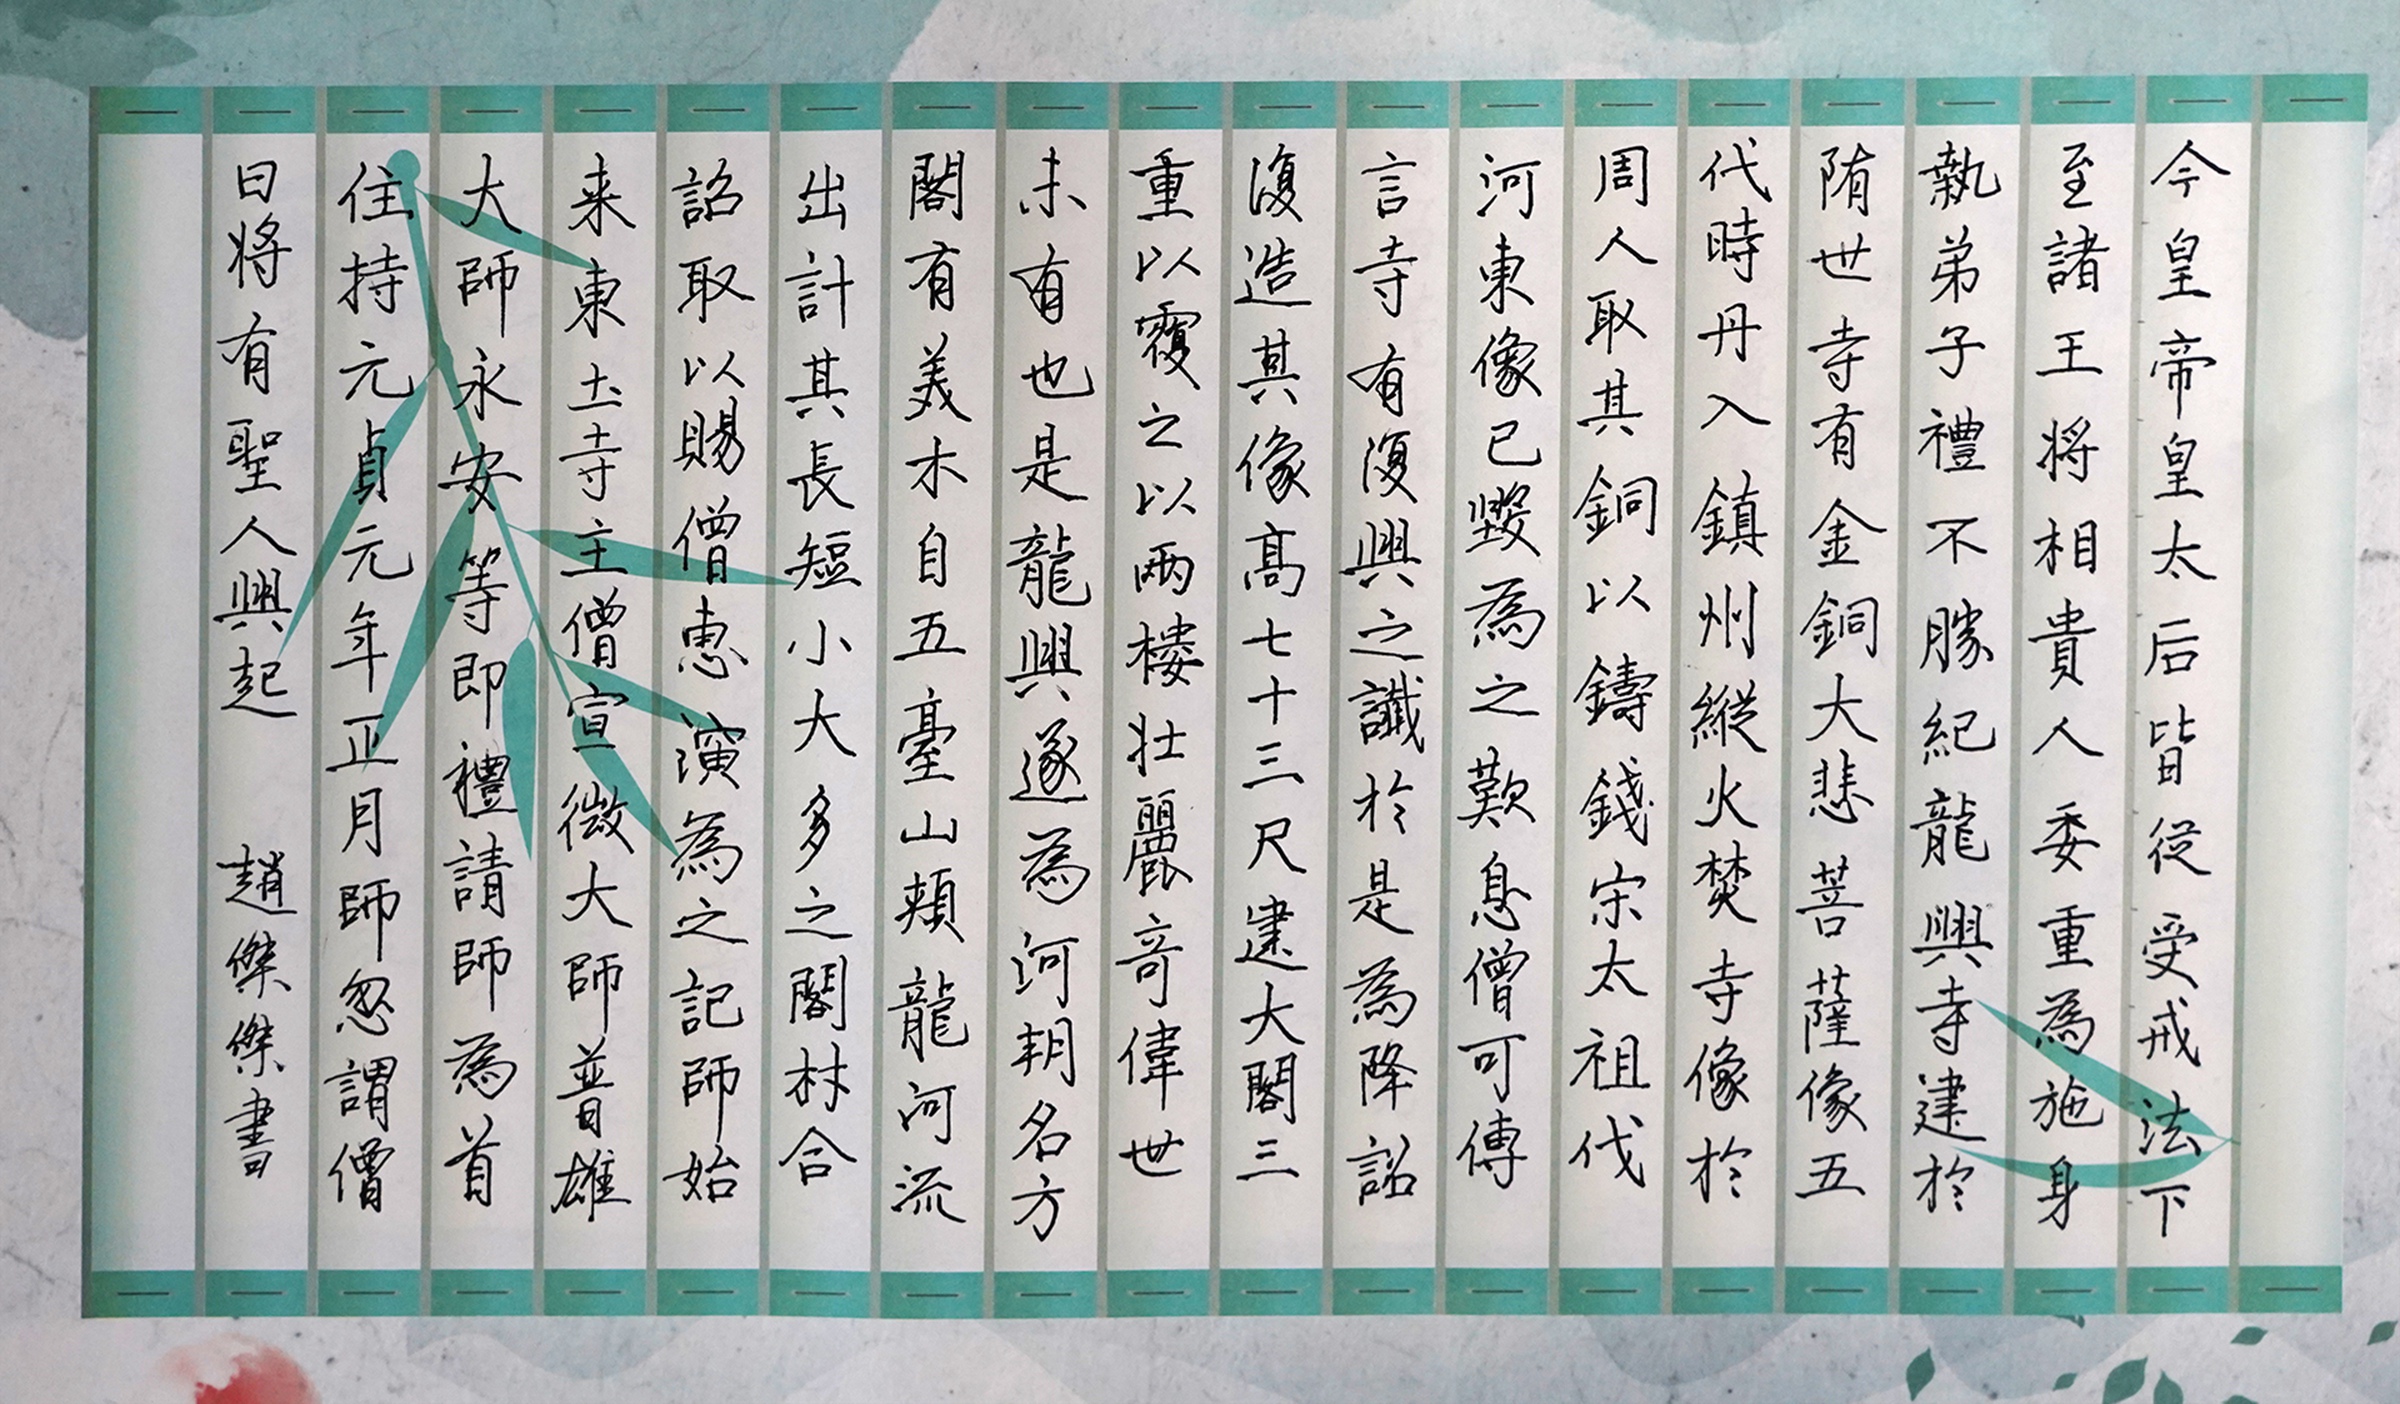 今皇帝皇太后皆從受戒法下
至諸王將相貴人委重為施身
執弟子禮不勝紀龍興寺建於
隋世寺有金銅大悲菩薩像五
代時丹入鎮州縱火焚寺像於
周人取其銅以鑄錢宋太祖伐
河東像已毀為之歎息僧可傳
言寺有復興之讖於是為降詔
復造其像高七十三尺建大閣三
重以覆之以兩樓壯麗奇偉世
未有也是龍興遂為河朔名方
閣有美木自五臺山頰龍河流
出計其長短小大多之閣材合
詔取以賜僧惠演為之記師始
来東土寺主僧宣微大師普雄
大師永安等即禮請師為首
住持元貞元年正月師忽謂僧
曰將有聖人興起 趙傑傑書